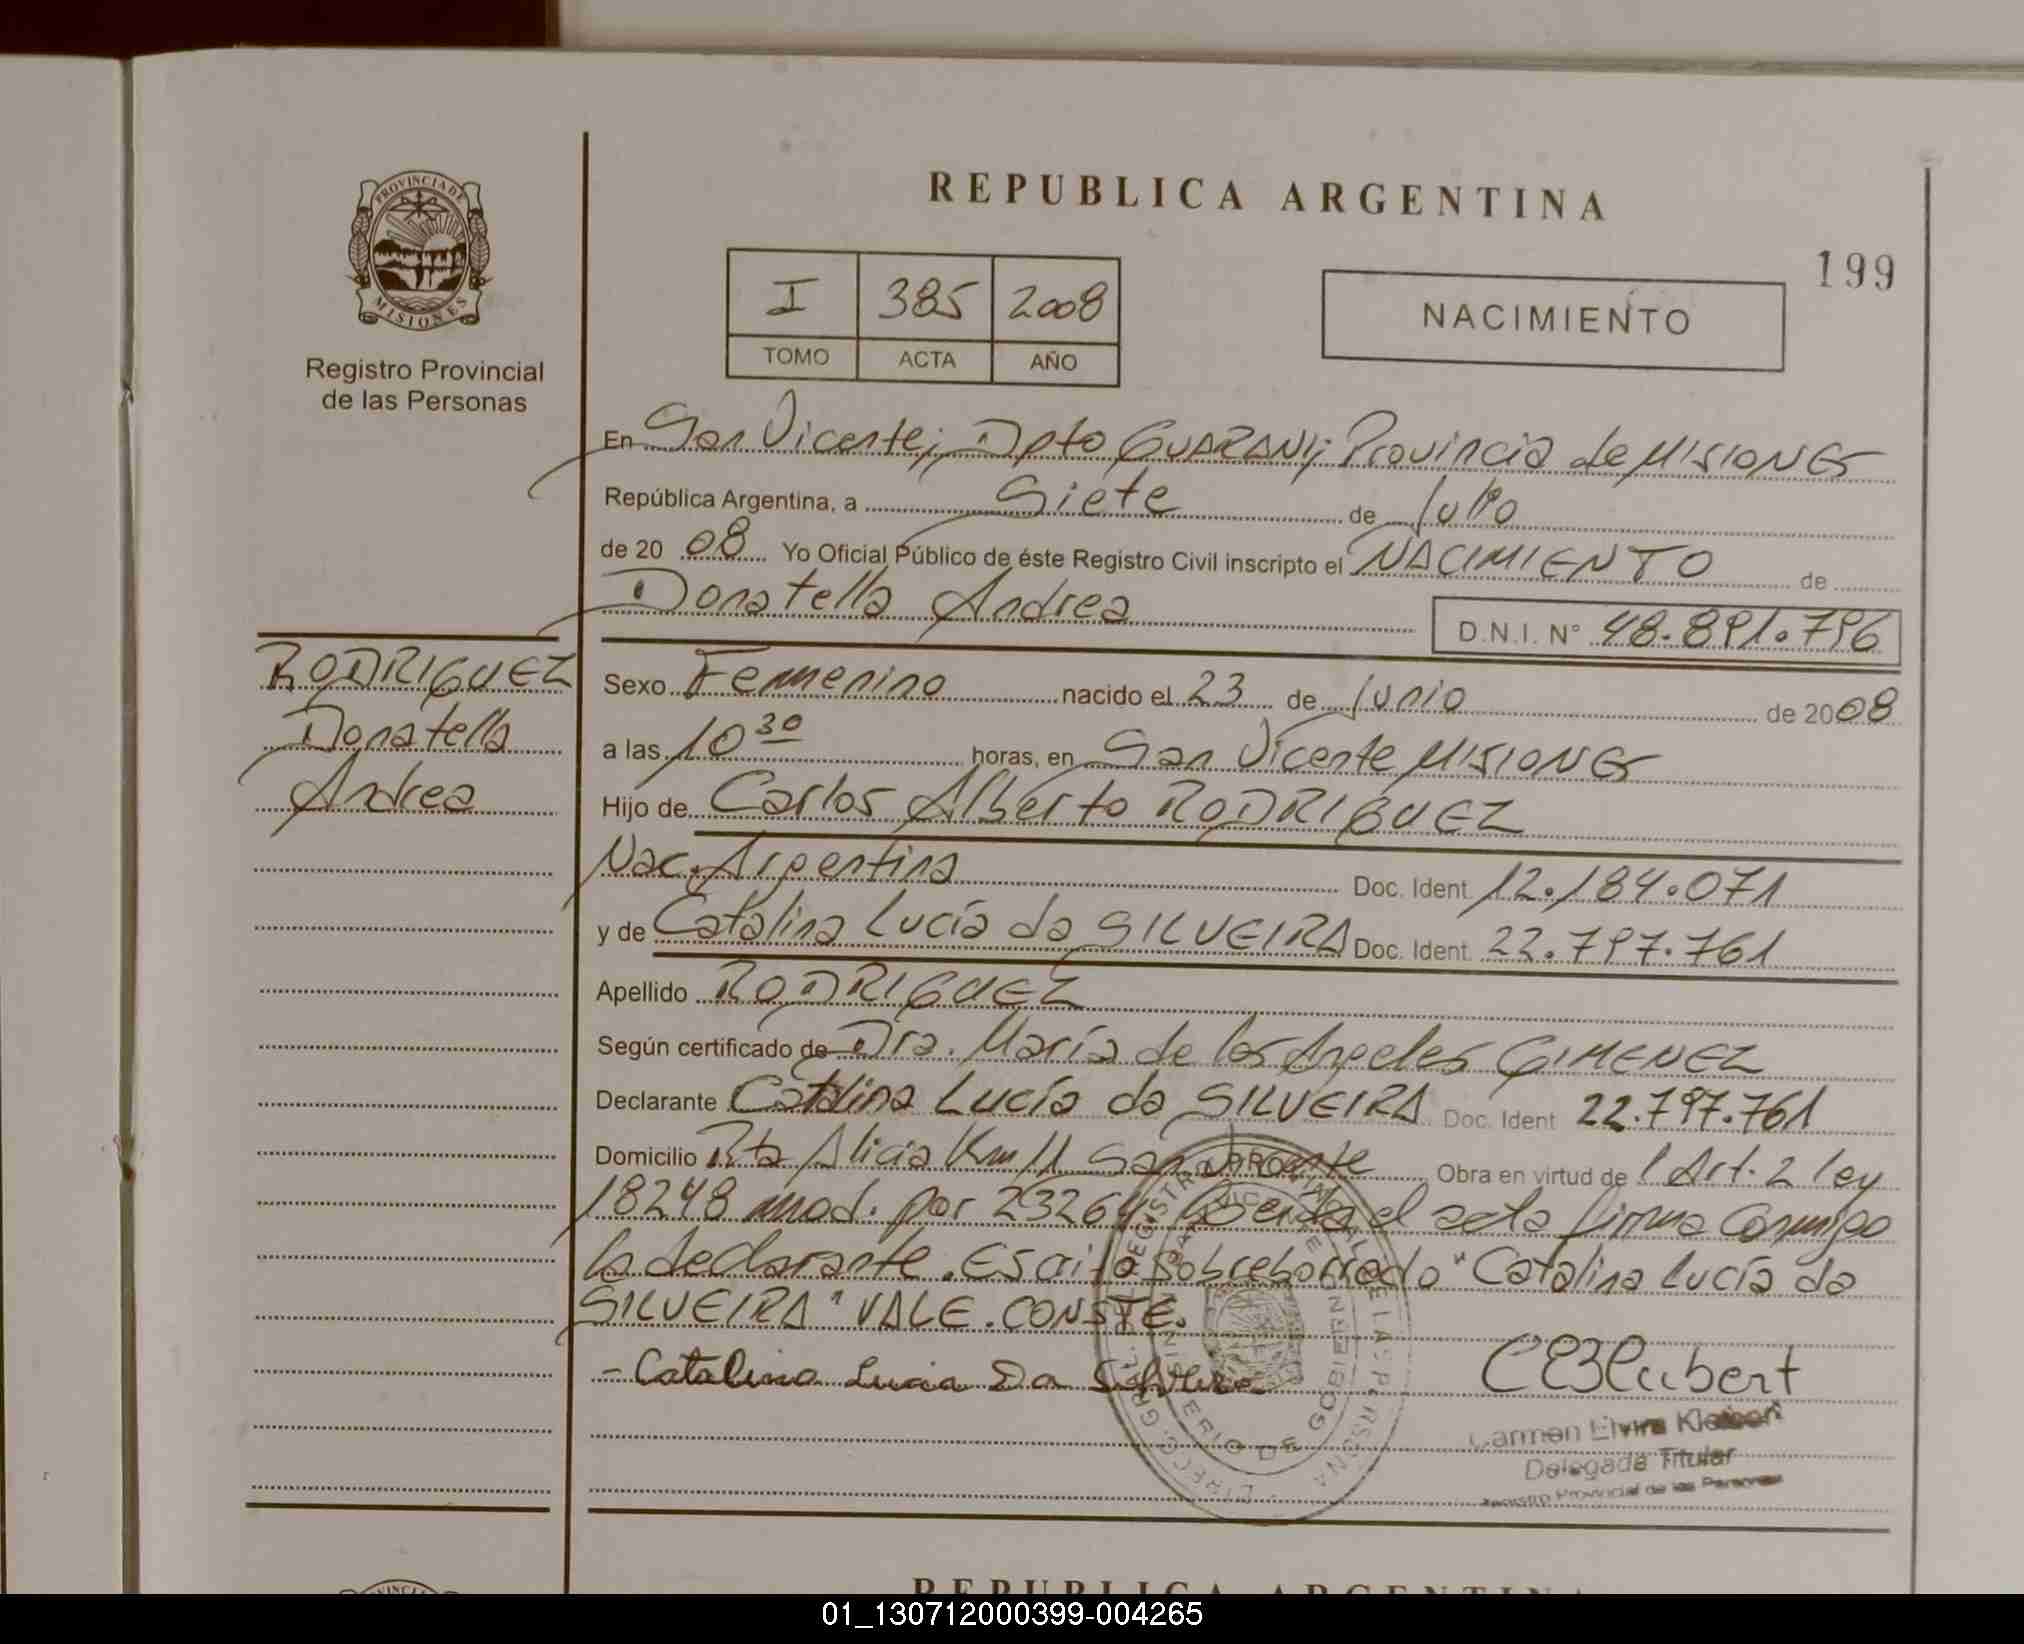 PROVINCIA DE
MISIONES
Registro Provincial
de las Personas
REPUBLICA ARGENTINA
199
I 385 2008
TOMO ACTA AÑO
NACIMIENTO
En San Vicente; Dpto GUARANI; Provincia de MISIONES
República Argentina, a Siete de Julio
de 20 08 Yo Oficial Público de éste Registro Civil inscripto el NACIMIENTO de
Donatella Andrea
D.N.I. N° 48.891.796
RODRIGUEZ
Donatella
Andrea
Sexo Femenino nacido el 23 de Junio de 2008
a las 10 30 horas, en San Vicente MISIONES
Hijo de Carlos Alberto RODRIGUEZ
Nac. Argentina Doc. Ident. 12.184.071
y de Catalina Lucía da SILVEIRA Doc. Ident. 22.797.761
Apellido RODRIGUEZ
Según certificado de Dra. María de los Angeles GIMENEZ
Declarante Catalina Lucía da SILVEIRA Doc. Ident 22.797.761
Domicilio Rta Alicia Km 11 San Vicente Obra en virtud de l Art. 2 ley
18248 mod. por 23264 el acta firma conmigo
la declarante. Escrito Sobreborrado "Catalina Lucía da
SILVEIRA" VALE. CONSTE.
- Catalina Lucia Da Silveira
CEKlubert
Carmen Elvira
Delegada Titular
Registro Provincial de las Personas
MINISTERIO DE GOBIERNO
REPUBLICA ARGENTINA
01_130712000399-004265